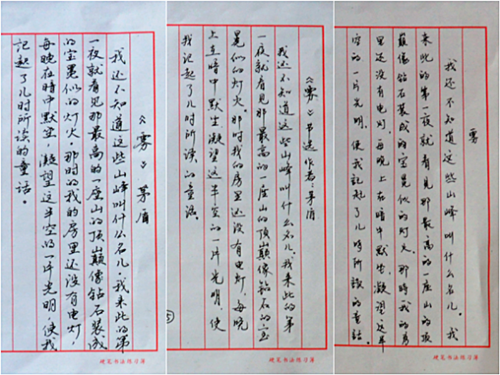 《雾》 茅盾
我还不知道这些山峰叫什么名儿,我来此的第
一夜就看见那最高的一座山的顶巅像钻石装成
的宝冕似的灯火。那时的我的房里还没有电灯,
每晚在暗中默坐,凝望这半空的一片光明,使我
记起了儿时所读的童话。
硬笔书法练习簿
《雾》节选 作者:茅盾
我还不知道这些山峰叫什么名儿,我来此的第
一夜就看见那最高的一座山的顶巅像钻石的宝
冕似的灯火。那时我的房里还没有电灯,每晚
上在暗中默坐凝望这半空的一片光明,使
我记起了儿时所读的童话。
硬笔书法练习簿
雾
我还不知道这些山峰叫什么名儿,我
来此的第一夜就看见那最高的一座山的顶
巅像钻石装成的宝冕似的灯火。那时我的房
里还没有电灯,每晚上在暗中默坐,凝望这半
空的一片光明,使我记起了儿时所读的童话。
硬笔书法练习簿